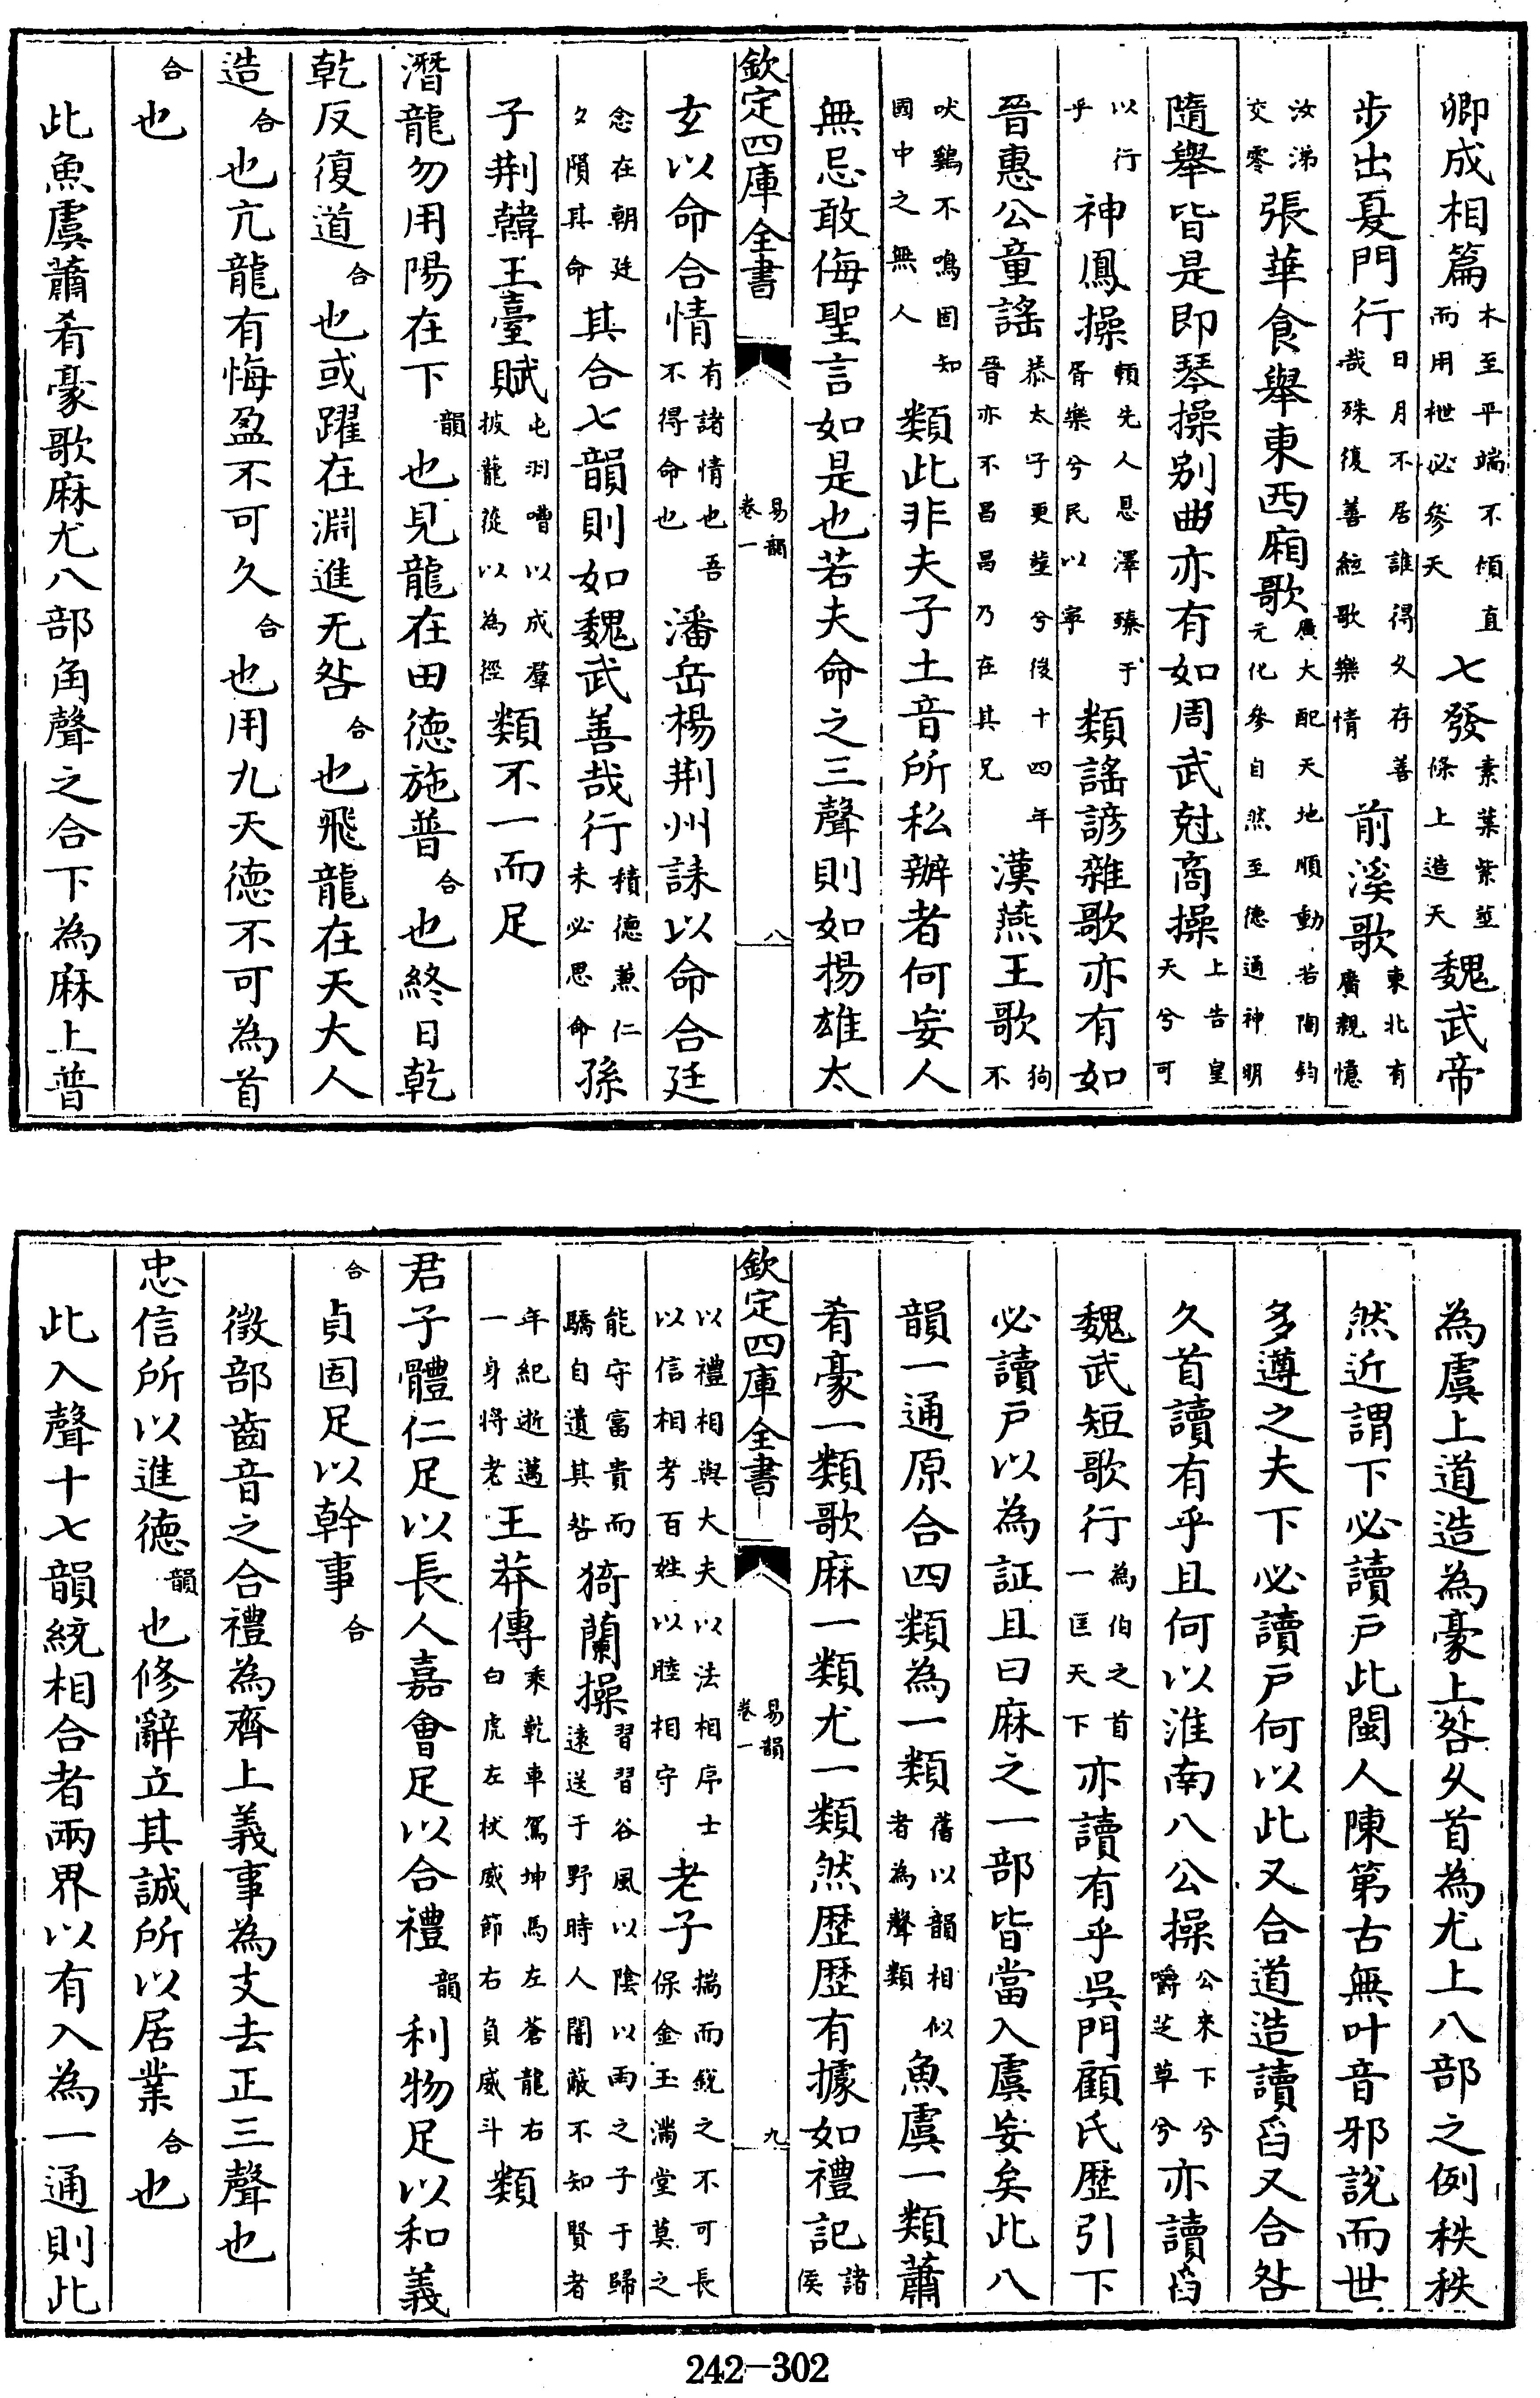 卿成相篇木至平端不傾直而用枻必參天七發素葉紫莖條上造天魏武帝
步出夏門行日月不居誰得久存善哉殊復善絃歌樂情前溪歌東北有廣親憶
汝涕交零張華食舉東西廂歌廣大配天地順動若陶鈞元化參自然至德通神明
隨舉皆是即琴操别曲亦有如周武尅商操上告皇天兮可
以行乎神鳳操賴先人恩澤臻于胥樂兮民以寧類謠諺雜歌亦有如
晉惠公童謠恭太子更塟兮後十四年晉亦不昌昌乃在其兄漢燕王歌狗不
吠鷄不鳴固知國中之無人類此非夫子土音所私辦者何妄人
無忌敢侮聖言如是也若夫命之三聲則如揚雄太
欽定四庫全書
易韻
卷一
八
玄以命合情有諸情也吾不得命也潘岳楊荆州誄以命合廷
念在朝廷夕隕其命其合七韻則如魏武善哉行積德兼仁未必思命孫
子荆韓王臺賦屯羽嘈以成羣披龍從以為徑類不一而足
潛龍勿用陽在下韻也見龍在田德施普合也終日乾
乾反復道合也或躍在淵進无咎合也飛龍在天大人
造合也亢龍有悔盈不可久合也用九天德不可為首
合也
此魚虞蕭肴豪歌麻尤八部角聲之合下為麻上普
為虞上道造為豪上咎久首為尤上八部之例秩秩
然近謂下必讀戸此閩人陳第古無叶音邪說而世
多遵之夫下必讀戸何以此又合道造讀舀又合咎
久首讀有乎且何以淮南八公操公來下兮嚼芝草兮亦讀舀
魏武短歌行為伯之首一匡天下亦讀有乎吳門顧氏歷引下
必讀戸以為証且曰麻之一部皆當入虞妄矣此八
韻一通原合四類為一類舊以韻相似者為聲類魚虞一類蕭
肴豪一類歌麻一類尤一類然歷歷有據如禮記諸侯
欽定四庫全書
易韻
卷一
九
以禮相與大夫以法相序士以信相考百姓以睦相守老子揣而銳之不可長保金玉滿堂莫之
能守富貴而驕自遺其咎猗蘭操習習谷風以陰以雨之子于歸遠送于野時人闇蔽不知賢者
年紀逝邁一身將老王莽傳乘乾車駕坤馬左蒼龍右白虎左杖威節右負威斗類
君子體仁足以長人嘉會足以合禮韻利物足以和義
合貞固足以幹事合
徵部齒音之合禮為齊上義事為支去正三聲也
忠信所以進德韻也修辭立其誠所以居業合也
此入聲十七韻統相合者兩界以有入為一通則此
242-302